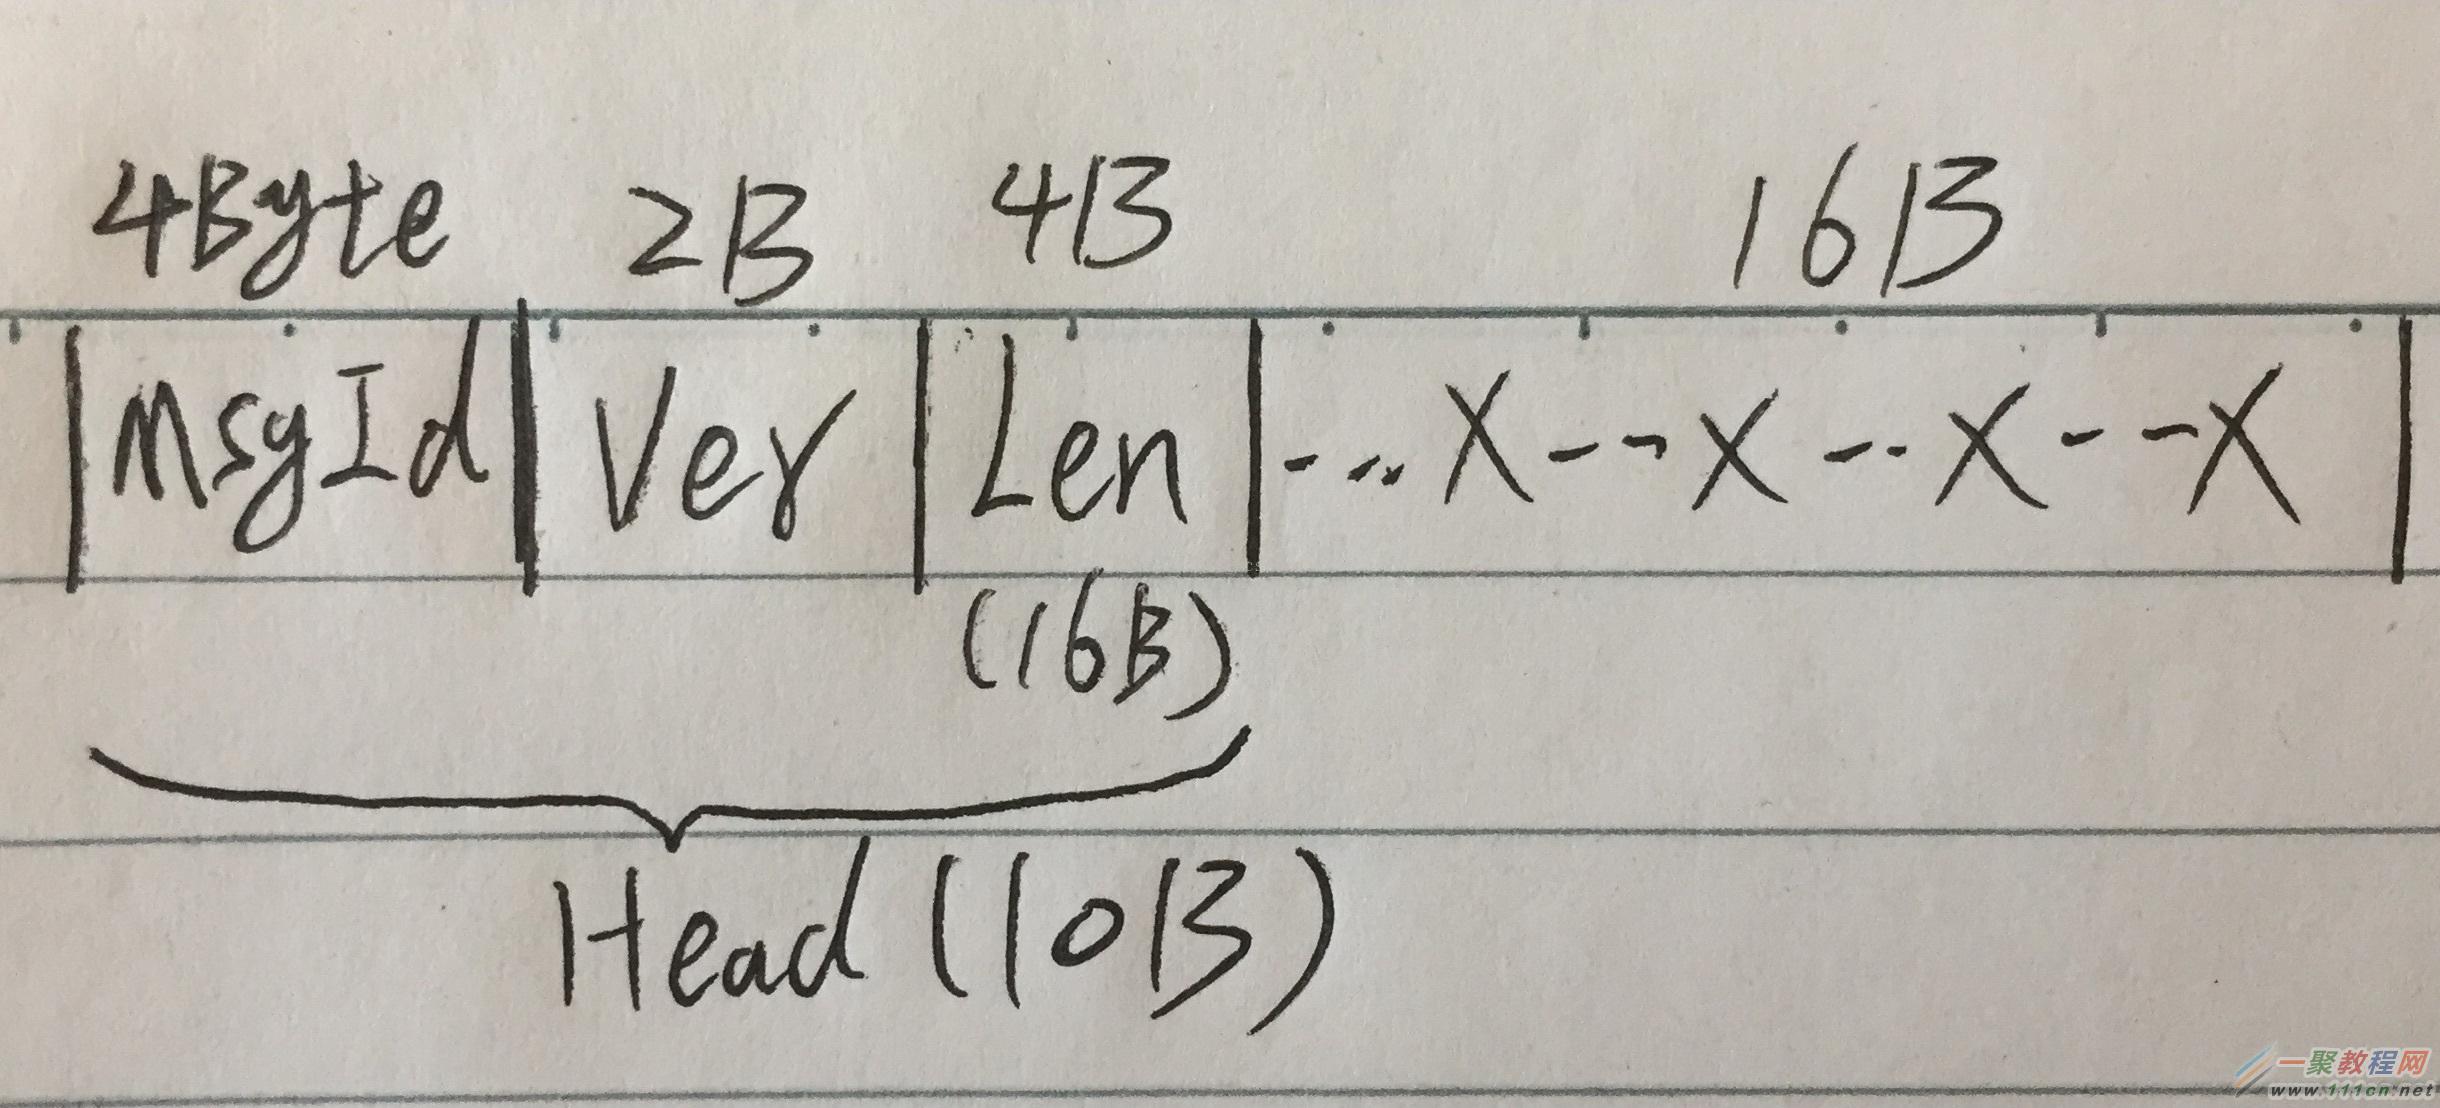 4Byte 2B 4B 16B
|MsgId|Ver|Len|--...X---X---X---X|
(16B)
Head (10B)
一聚教程网
www.111cn.net